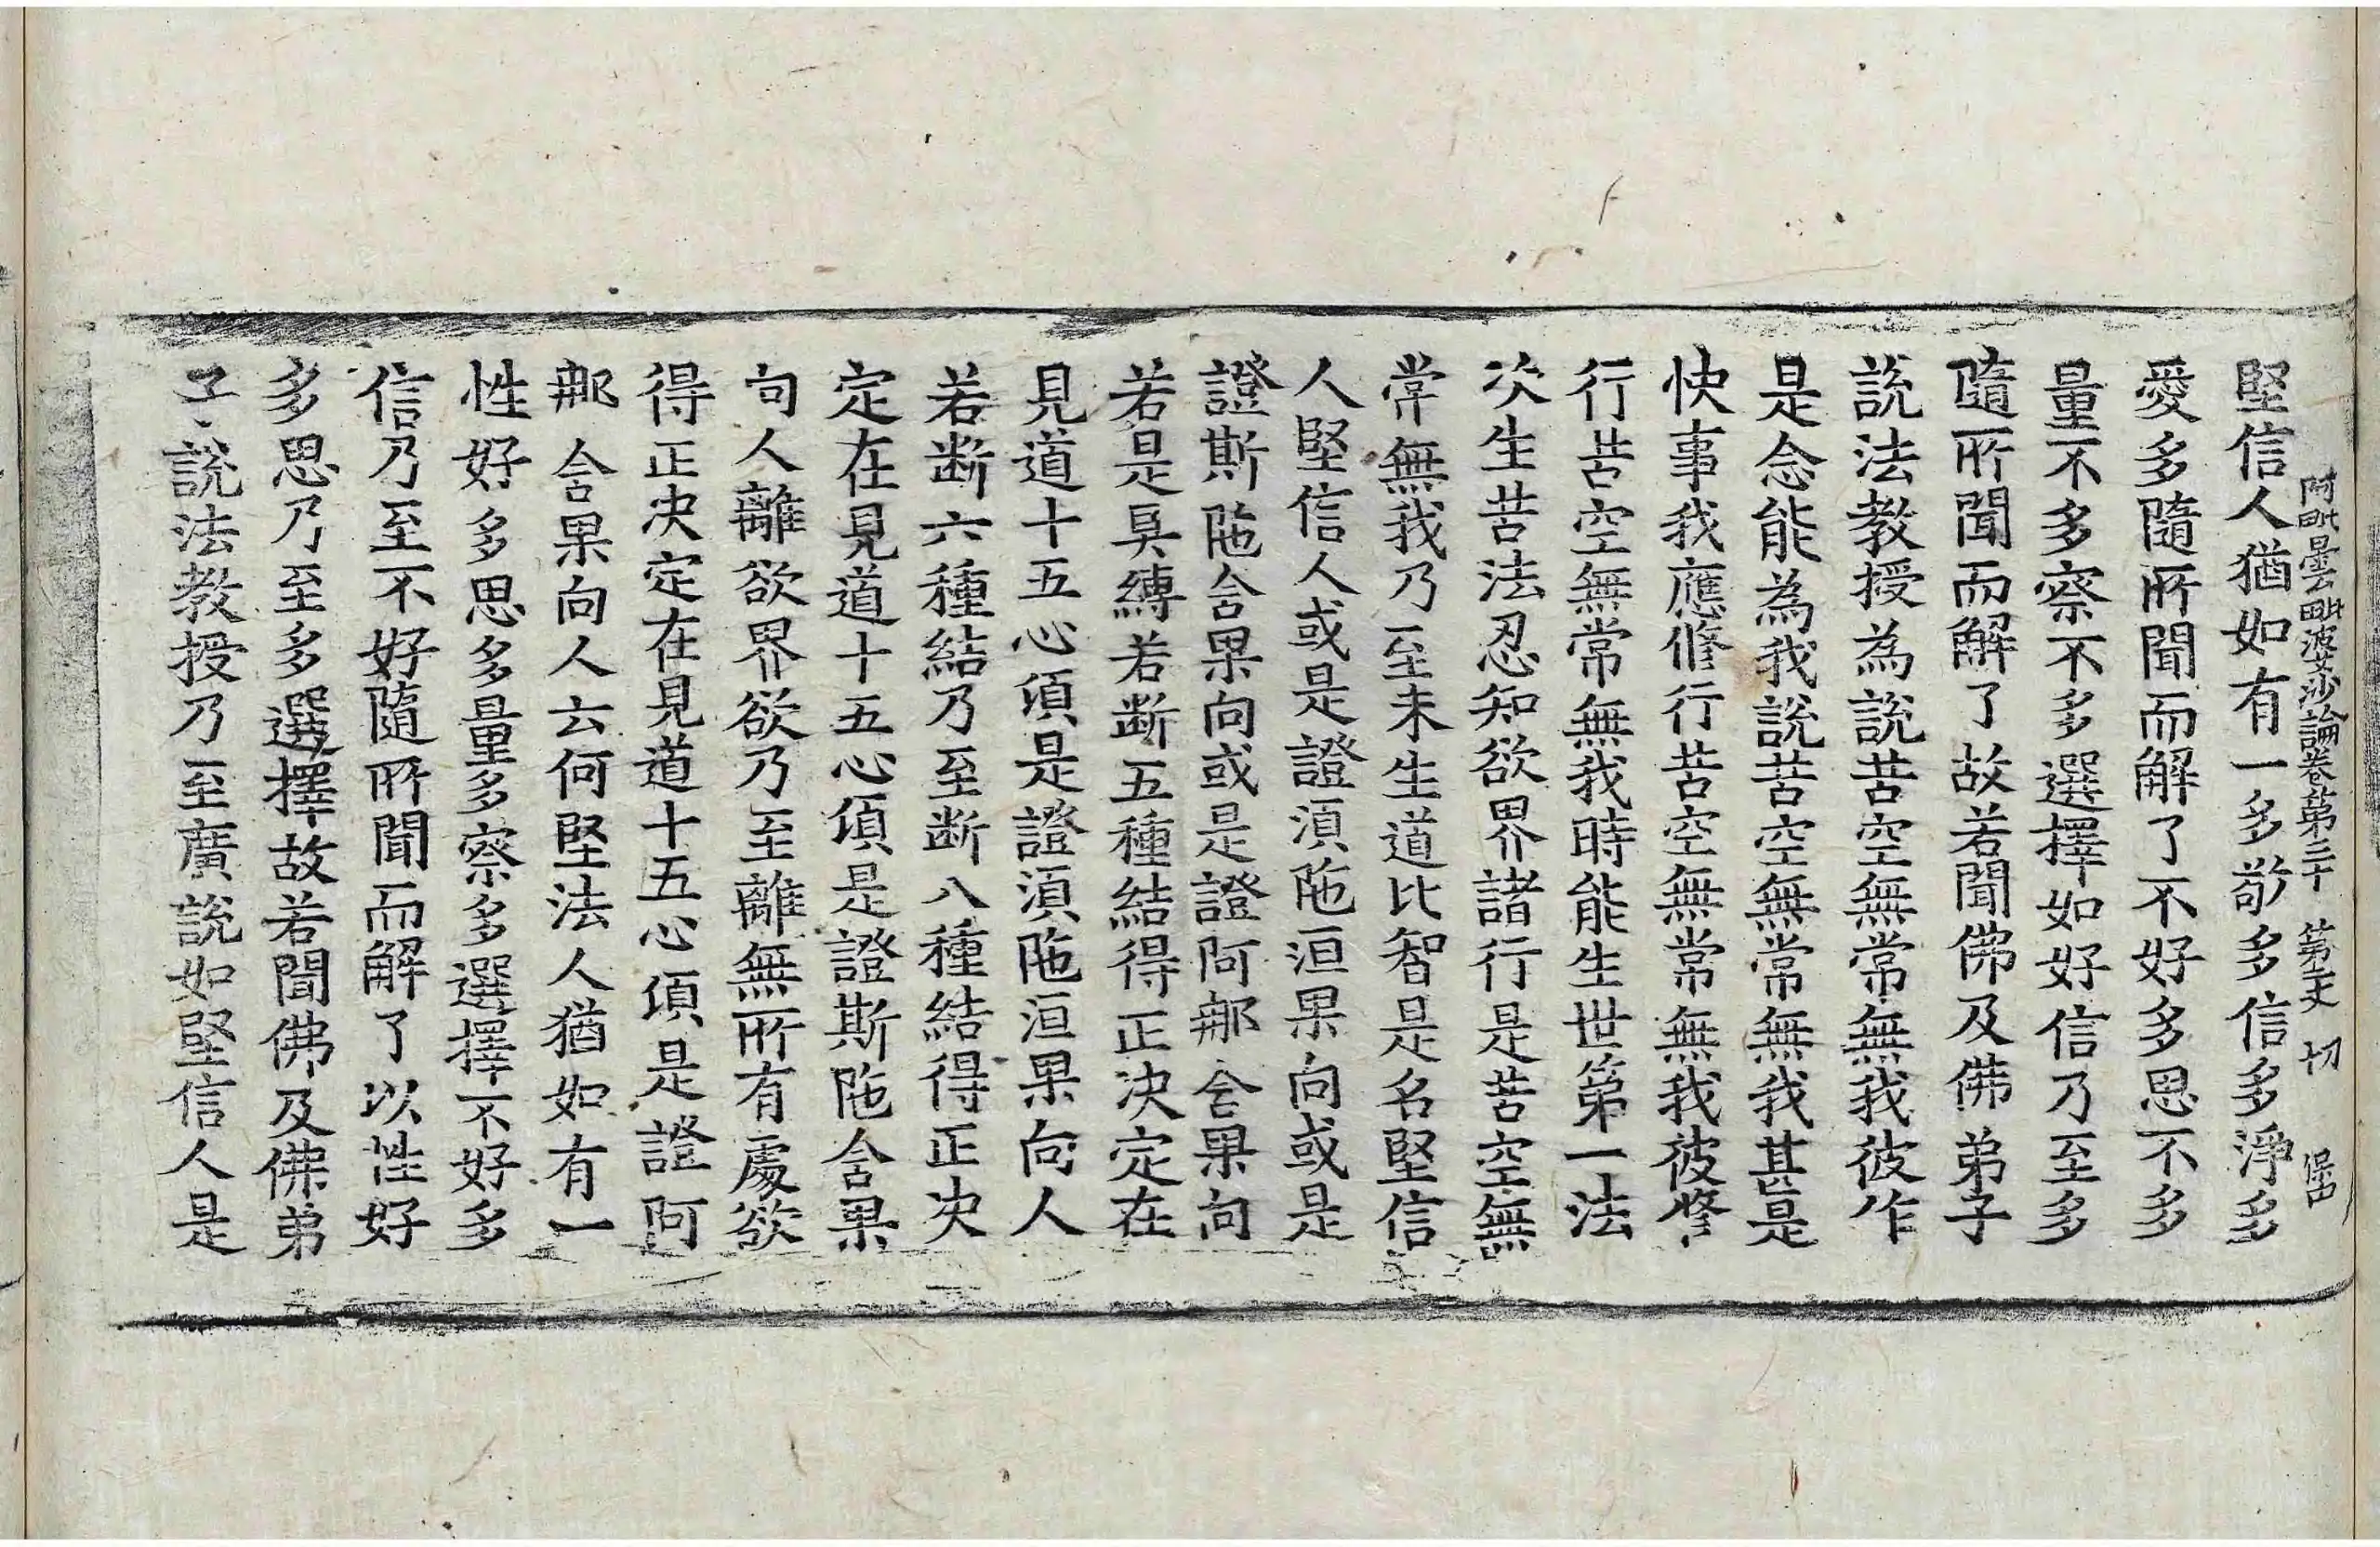 阿毗曇毗婆沙論卷第二十 第二丈 切
堅信人猶如有一多敬多信多淨多
愛多隨所聞而解了不好多思不多
量不多察不多選擇如好信乃至多
隨所聞而解了故若聞佛及佛弟子
說法教授為說苦空無常無我彼作
是念能為我說苦空無常無我甚是
快事我應修行苦空無常無我彼修
行苦空無常無我時能生世第一法
次生苦法忍知欲界諸行是苦空無
常無我乃至未生道比智是名堅信
人堅信人或是證須陁洹果向或是
證斯陁含果向或是證阿那含果向
若是具縛若斷五種結得正決定在
見道十五心頃是證須陁洹果向人
若斷六種結乃至斷八種結得正決
定在見道十五心頃是證斯陁含果
向人離欲界欲乃至離無所有處欲
得正決定在見道十五心頃是證阿
那含果向人云何堅法人猶如有一
性好多思多量多察多選擇不好多
信乃至不好隨所聞而解了以性好
多思乃至多選擇故若聞佛及佛弟
子說法教授乃至廣說如堅信人是